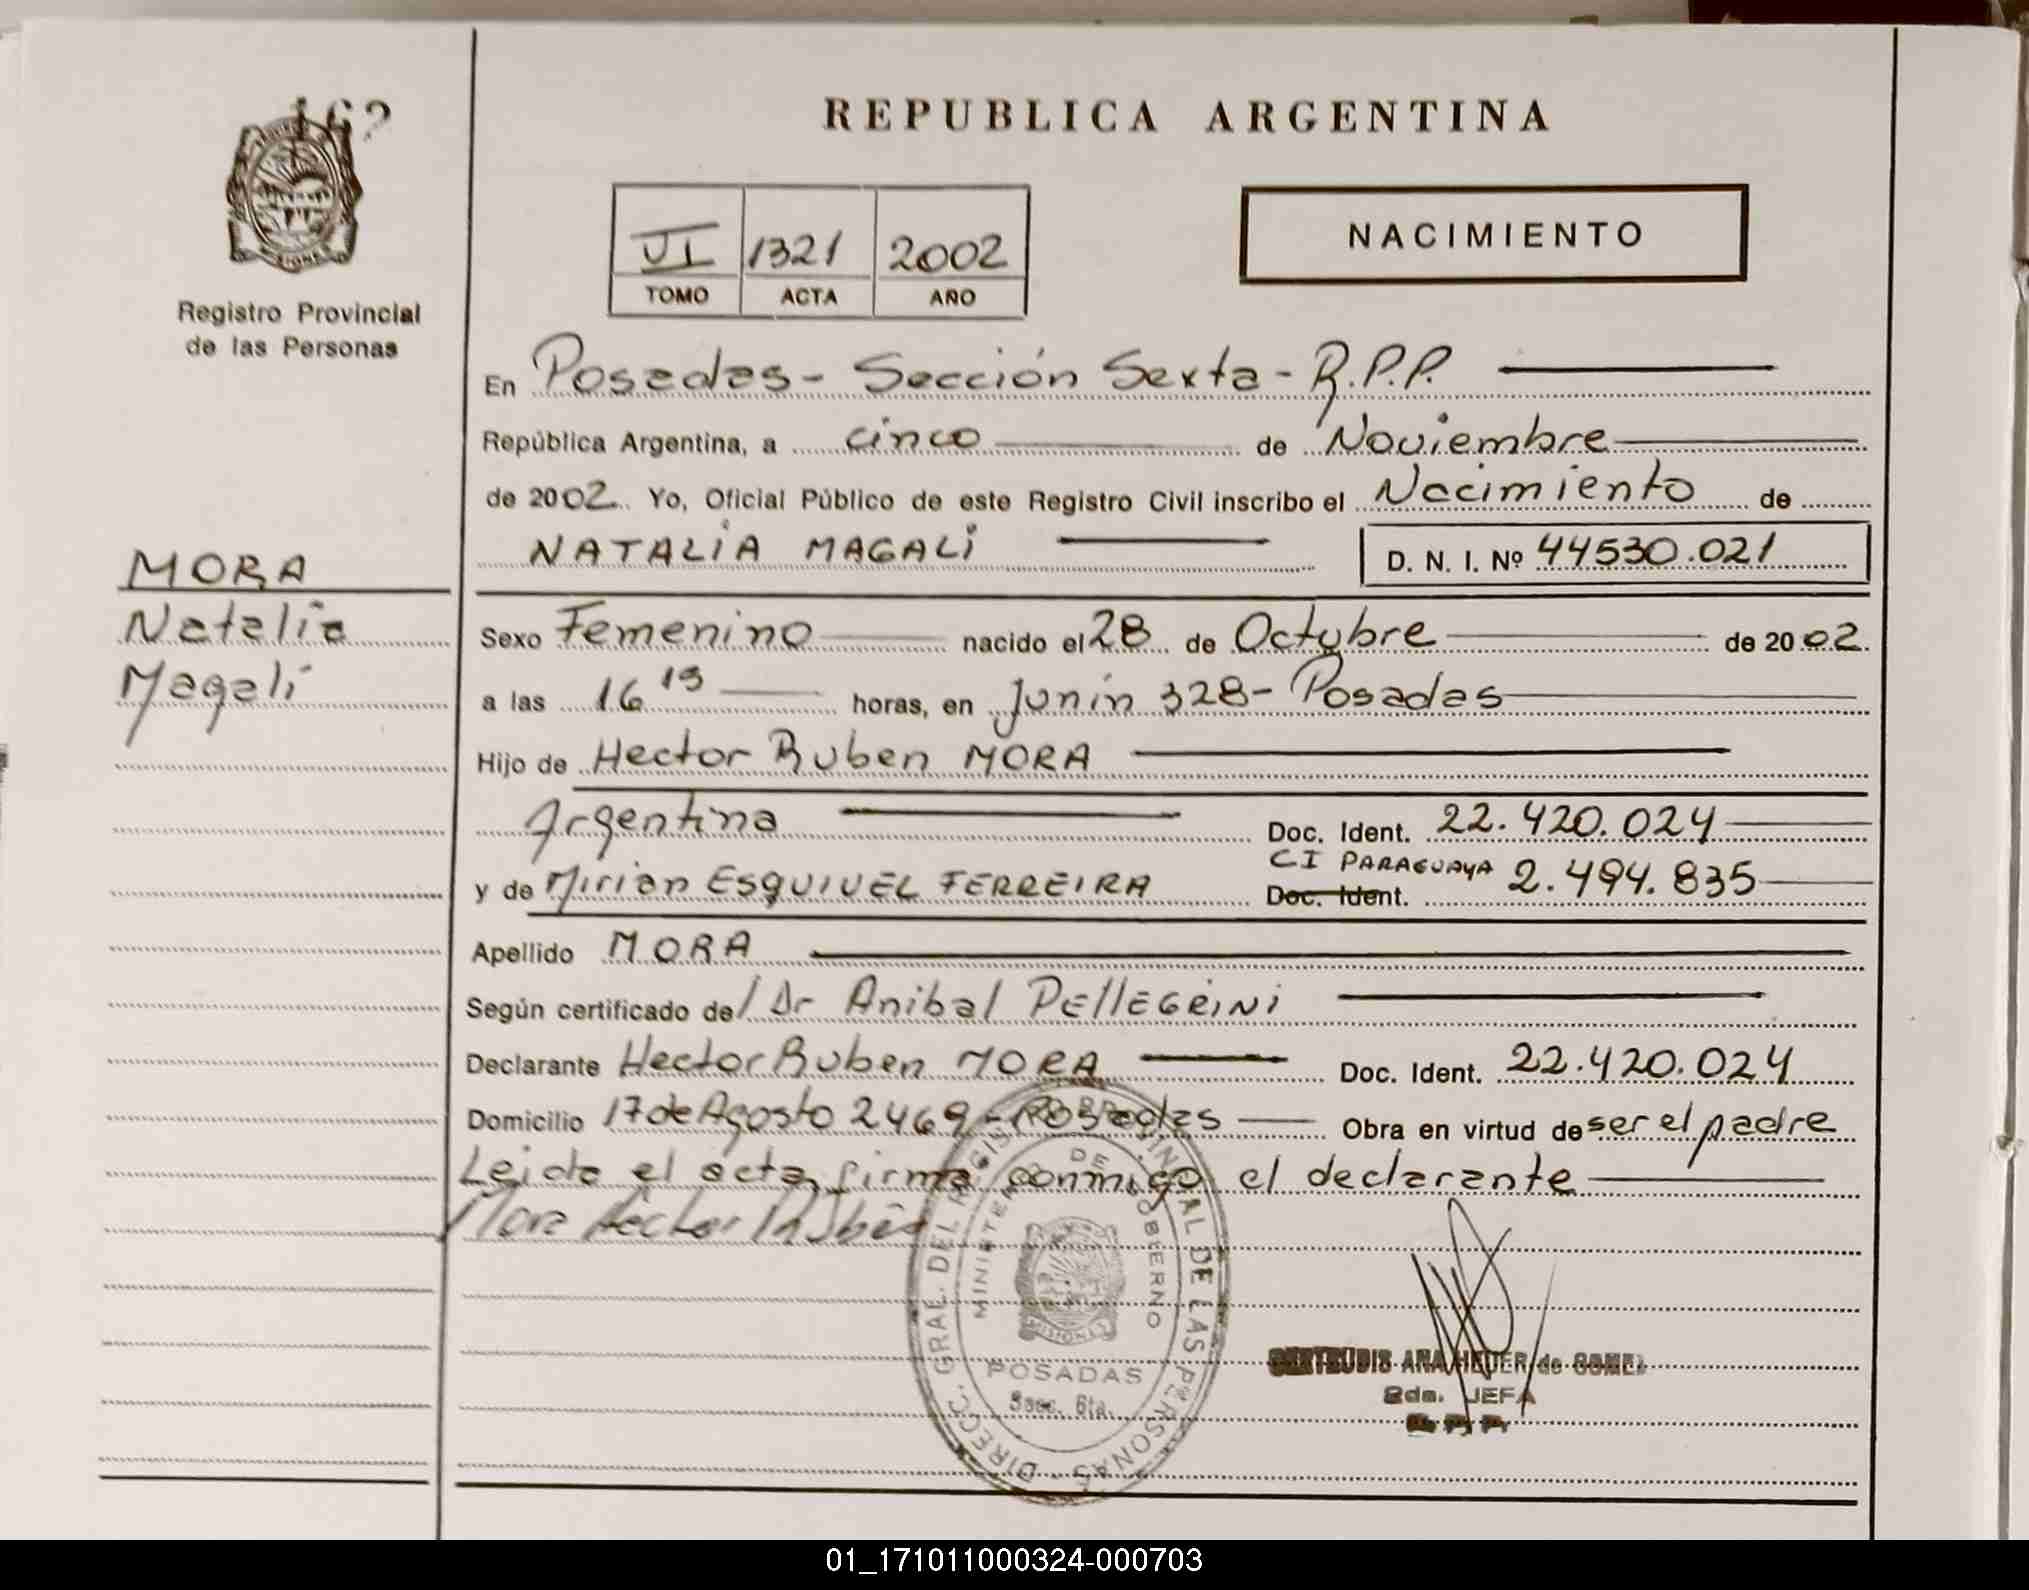 162
REPUBLICA ARGENTINA
Registro Provincial
de las Personas
VI 1321 2002
TOMO ACTA AÑO
NACIMIENTO
En Posadas - Sección Sexta - R.P.P.
República Argentina, a cinco de Noviembre
de 2002. Yo, Oficial Público de este Registro Civil inscribo el Nacimiento de
NATALIA MAGALI D. N. I. Nº 44530.021
MORA
Natalia
Magali
Sexo Femenino nacido el 28 de Octubre de 2002.
a las 16 15 horas, en Junín 328 - Posadas
Hijo de Hector Ruben MORA
Argentina Doc. Ident. 22.420.024
CI PARAGUAYA
y de Mirian ESQUIVEL FERREIRA Doc. Ident. 2.494.835
Apellido MORA
Según certificado de/ Dr Anibal PELLEGRINI
Declarante Hector Ruben MORA Doc. Ident. 22.420.024
Domicilio 17 de Agosto 2469 - Posadas Obra en virtud de ser el padre
Leida el acta, firma conmigo el declarante
Mora Héctor Rubén
DIRECC. GRAL. DEL REGISTRO PROVINCIAL DE LAS PERSONAS
MINISTERIO DE GOBIERNO
MISIONES
POSADAS
Secc. 6ta.
GERTRUDIS ANA HEDER de
2da. JEFA
R. P. P.
01_171011000324-000703